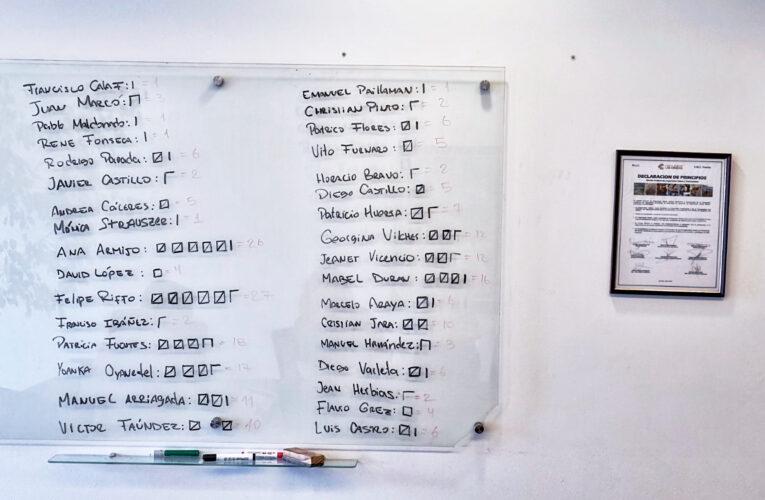 Francisco Calaf: = 1
Juan Marcó: = 3
Pablo Maldonado: = 1
Rene Fonseca: = 1
Rodrigo Parada: = 6
Javier Castillo: = 2
Andrea Cáceres: = 5
Mónica Strauszer: = 1
Ana Armijo: = 26
David López: = 4
Felipe Riffo: = 27
Francisco Ibáñez: = 2
Patricia Fuentes: = 18
Yoanka Oyanedel: = 17
Manuel Arriagada: = 11
Victor Faúndez: = 10
Emanuel Paillaman: = 1
Christian Pinto: = 2
Patricio Flores: = 6
Vito Furnaro: = 5
Horacio Bravo: = 2
Diego Castillo: = 5
Patricio Huerta: = 7
Georgina Vilches: = 12
Jeanet Vicencio: = 12
Mabel Duran: = 16
Marcelo Araya: = 6
Cristian Jara: = 10
Manuel Hernández: = 3
Diego Varleta: = 6
Jean Herbias: = 2
Flavio Grez: = 4
Luis Castro: = 6
DECLARACION DE PRINCIPIOS